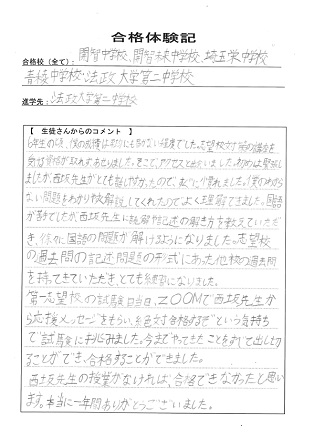 合格体験記
合格校（全て）： 開智中学校、開智未来中学校、埼玉栄中学校
青稜中学校・法政大学第二中学校
進学先： 法政大学第二中学校
【 生徒さんからのコメント 】
6年生の頃、僕の成績は
志望校対策の講座を
受ける資格が取れませんでした。そこで、アクセスと出会いました。初めは緊張し
ましたが、西坂先生がとても話しやすかったので、すぐに慣れました！僕のわから
ない問題をわかりやすく解説してくれたのでよく理解できました。国語
が苦手でしたが、西坂先生に読解や記述の解き方を教えていただ
き、徐々に国語の問題が解けるようになりました。志望校
の過去問の記述問題の形式にあった他校の過去問
を持ってきていただき、とても練習になりました。
第一志望校の試験日当日、ZOOMで西坂先生か
ら応援メッセージをもらい、絶対合格するぞという気持ち
で試験に挑みました。今までやってきたことをすべて出し切る
ことができ、合格することができました。
西坂先生の授業がなければ、合格できなかったと思い
ます。本当に一年間ありがとうございました。